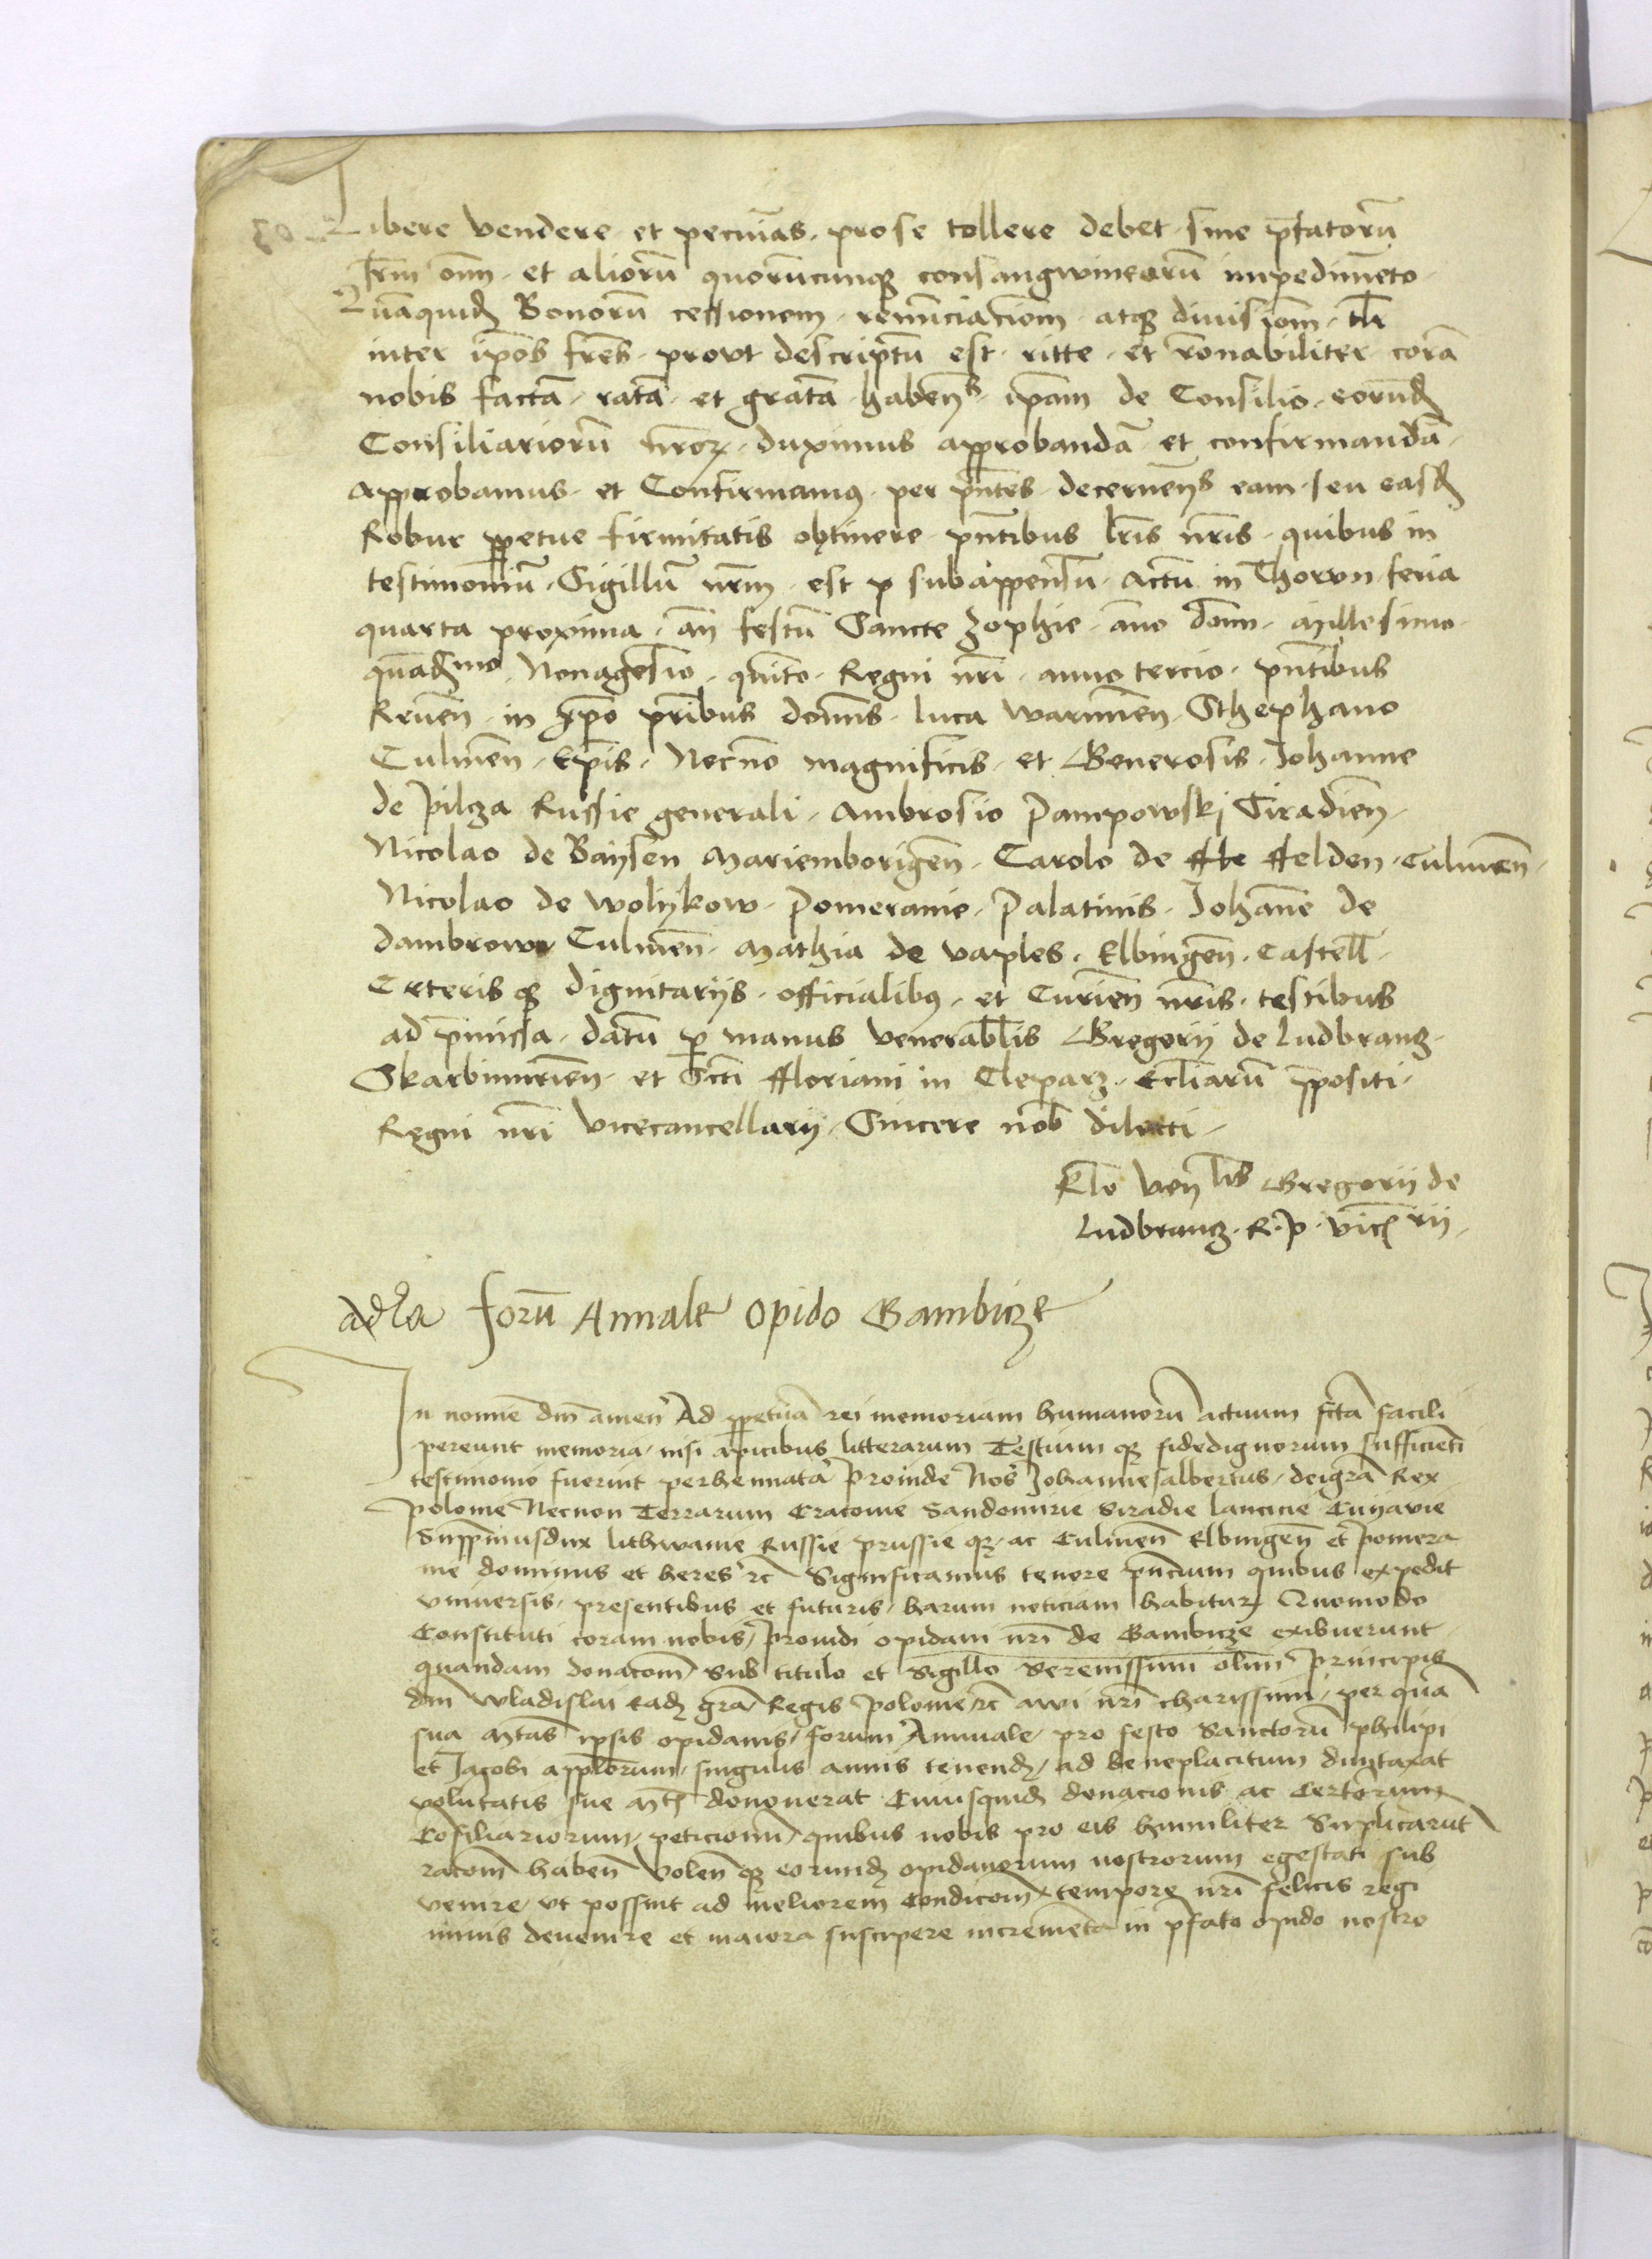 Libere vendere et pecunīas prose tollere debet sine p̄fatorū
frm̄ om̄ et aliorū quorūcunqꝫ consangwineorū impedimēto
Quāquidꝫ Bonorū cessionem renūnciac̄iom atqꝫ diuisiom̄ tl̄r
inter ip̄os fr̄es prout descriptū est ritte et rōnabiliter corā
nobis factā ratā et gratā haben̄s ip̄am de Consilio eorundꝫ
Consiliariorū nr̄oꝝ duximus approbandā et confirmandā
Approbamus et Confirmamꝰ per pn̄tes decernen̄s eam seu easdꝫ
Robur ꝑpetue firmitatis obtinere pn̄tibus lr̄is nr̄is quibus in
testimoniū Sigillū nr̄m est p subappensū Actū in Thorvn feria
quarta proxima an̄ festū Sancte Zophie an̄o dom̄ Millesimo
qūadꝫmo Nonagesīo quīto Regni nr̄i anno tercio pn̄tibus
Reuen̄ in xp̄o pr̄ibus dom̄s luca warmien̄ Sthephano
Culmen̄ Ep̄is Necnō magnificis et Generosis Johanne
de pilcza Russie generali Ambrosio Pampowskj Siradien̄
Nicolao de Baysen Mariemborigen̄ Carolo de ffle ffelden Culmen̄
Nicolao de wolykow Pomeranie Palatinis Johān̄e de
dambrowa Culmen̄ Mathia de vaples Elbingen̄ Castell̄
Ceteris qꝫ dignitariis officialibꝰ et Curien̄ nr̄is testibus
ad p̄missa datū ꝑ manus venerabl̄is Gregorij de Ludbrancz
Skarbimirien̄ et Sct̄i ffloriani in Cleparz Ecl̄iarū ꝓpositi
Regni nr̄i vicecancellarij Sincere nob̄ dilecti
Rl̄o ven̄lis Gregorij de
Ludbrancz R. P. vic̄rij
Adl̄a forū Annale opido Gambicze
In nomīe dn̄i amen Ad ꝑpetuā rei memoriam humanorū actuum fctā facili
pereunt memoria nisi apicibus litterarum Testium qꝫ fidedignorum sufficiēti
testimonio fuerint perhennatā Proinde Nos Johannesalbertus deigrā Rex
polonie Necnon Terrarum Cracouie Sandomirie Siradie lancicie Cuyavie
Sup̄p̄musdux lithwanie Russie prussie qꝫ ac Culmen̄ Elbingen̄ et pomera
nie dominus et heres ꝛc Significamus tenore pn̄cium quibus expedit
vniuersis presentibus et futuris harum noticiam habiturꝫ Quomodo
Constituti coram nobis prouidi opidani nr̄i de Gambicze exibuerunt
quandam donacom̄ Sub titulo et Sigillo Serenissimi olim Principis
dn̄i Wladislai eadꝫ grā Regis polonie ꝛc avi nr̄i charissimi per quā
sua Mtās ipsis opidanis forum Annuale pro festo Sanctorū philipi
et Jacobi appl̄orum singulis annis tenendꝫ ad beneplacitum duntaxat
volūtatis sue Mt̄ꝫ dononerat Cuiusquidꝫ donacionis ac Certorum
Cōsiliariorum peticiom̄ quibus nobis pro eis humiliter Suplicarūt
racom̄ haben̄ Volen̄ qꝫ eorundꝫ opidanorum nostrorum egestati sub
venire vt possint ad meliorem Condicom̄ tempore nr̄i felicis regi
minis deuenire et maiora suscipere incremēta in p̄fato opido nostro